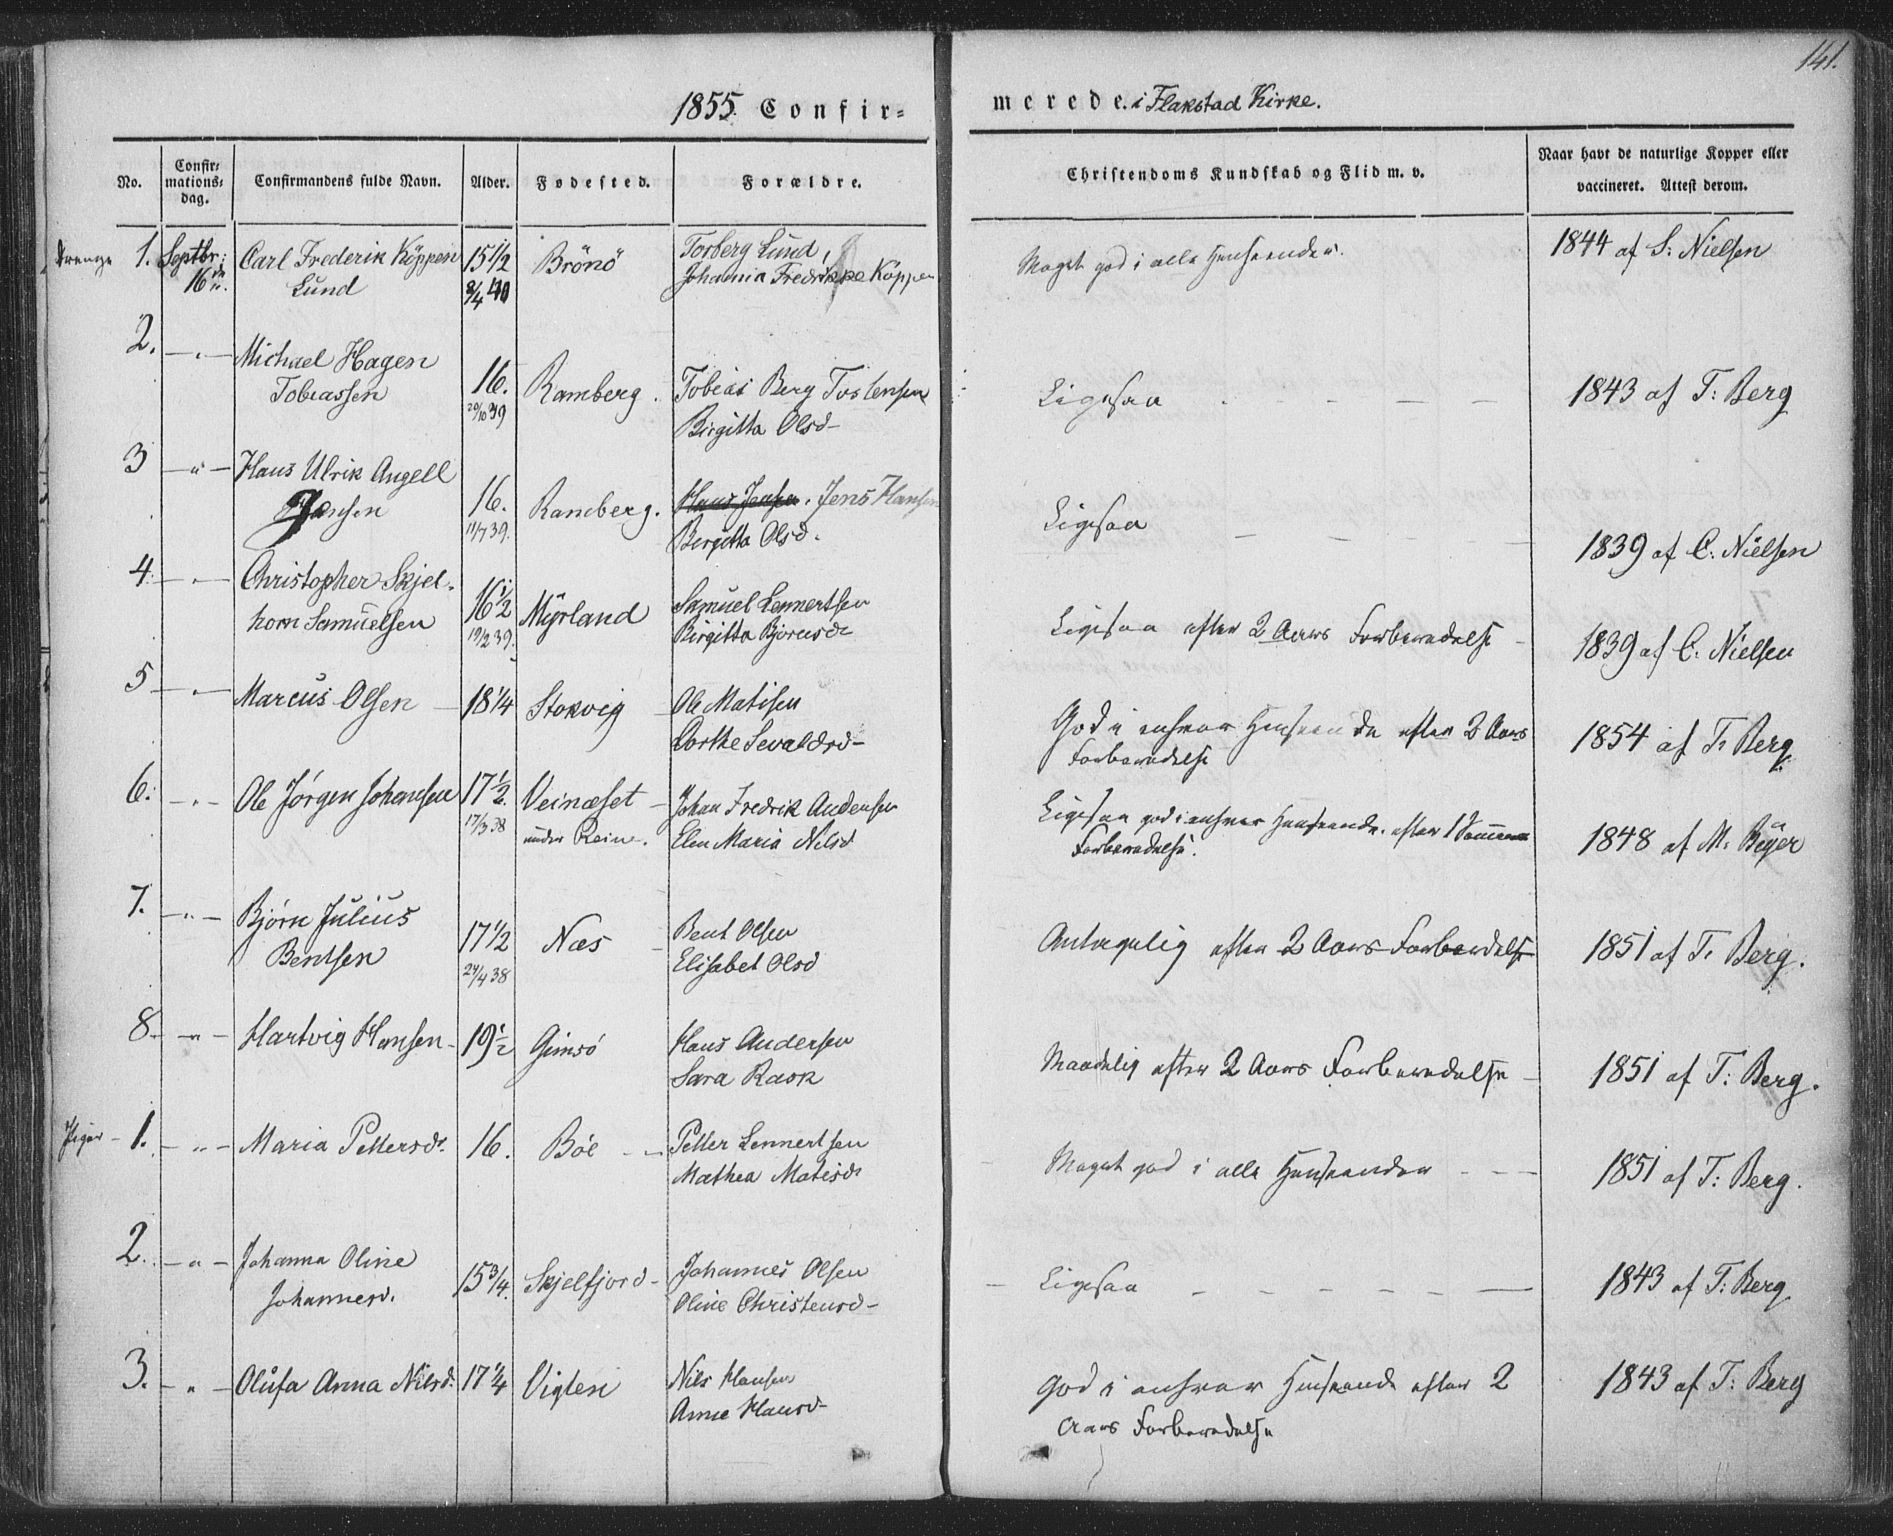 141.
1855. Confir= merede. i Flakstad Kirke.
No. Confir= mations= dag. Confirmandens fulde Navn. Alder. Fødested. Forældre. Christendoms Kundskab og Flid m. v. Naar havt de naturlige Kopper eller vaccineret. Attest derom.
Drenge 1. Septbr: Carl Frederik Köppen 15 1/2 Brönö Torberg Lund, Meget god i alle Henseender. 1844 af S: Nielsen
16de Lund 2/4 40 Johanna Fredrikke Köppen
2. — " — Michael Hagen 16. Ramberg. Tobias Berg Tostensen Ligesaa - - - - - 1843 af T: Berg
Tobiassen 20/10 39 Birgitta Olsd-
3 — " — Hans Ulrik Angell 16. Ramberg. Hans Jensen. Jens Hansen Ligesaa - - - 1839 af C. Nielsen
Jensen 11/7 39. Birgitta Olsd.
4. — " — Christopher Skjel- 16 1/2 Myrland Samuel Lennertsen Ligesaa efter 2 Aars Forberedelse - 1839 af C. Nielsen
horn Samuelsen 19/2 39. Birgitta Bjørnsdr
5 — " — Marcus Olsen — 18 1/4 Stokvig Ole Matisen God i enhver Henseende efter 2 Aars 1854 af T. Berg
Dorthe Sevaldsd- Forberedelse
6. — " — Ole Jörgen Johansen 17 1/2. Veinæset Johan Fredrik Andersen Ligesaa god i enhver Henseende. efter 1 Sommers 1848 af M. Beyer
17/3 38 under Rein. Elen Maria Nilsd Forberedelse.
7. — " — Bjørn Julius 17 1/2 Næs Bent Olsen Antagelig efter 2 Aars Forberedelse 1851 af T. Berg.
Bentsen 24/4 38 Elisabet Olsd
8. — " — Hartvig Hansen 19 1/2 Gimsö Hans Andersen Maadelig efter 2 Aars Forberedelse - 1851 af T: Berg.
Sara Rask
Piger - 1. — " — Maria Pettersdr 16. Böe - - Petter Lennertsen Meget god i alle Henseender - - - 1851 af T: Berg.
Mathea Matisdr
2. — " — Johanna Oline 15 3/4. Skjelfjord - Johannes Olsen - Ligesaa - - - - - - 1843 af T: Berg
Johannesd. Oline Christensd-
3. — " — Olufa Anna Nilsd. 17 1/4 Vigten Nils Hansen God i enhver Henseende efter 2 1843 af T: Berg
Anne Hansd- Aars Forberedelse